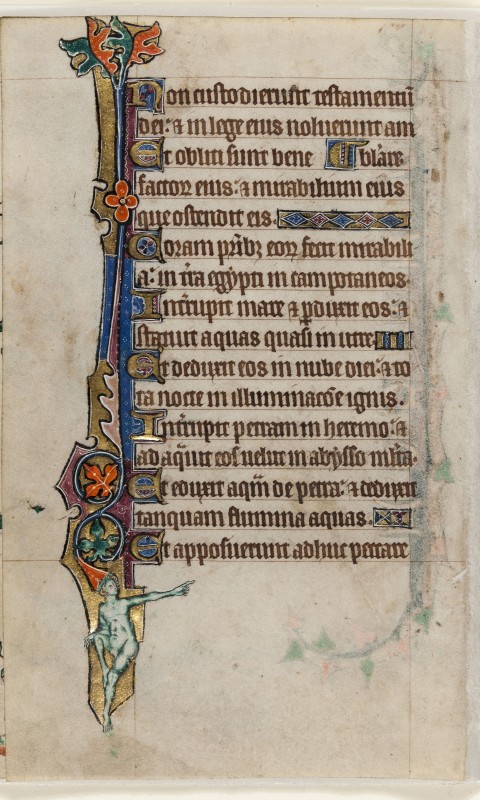 Non custodierunt testamentū
dei: ⁊ in lege eius noluerunt am
Et obliti sunt bene bʼlare
factoꝝ eius: ⁊ mirabilium eius
que ostendit eis.
Coram prībꝫ eoꝝ fecit mirabili
a: in tͥra egypti in campo taneos.
Intͥrupit mare ⁊ ꝑduxit eos: ⁊
statuit aquas quasi in utre
Et deduxit eos in nube diei: ⁊ to
ta nocte in illuminacōe ignis.
Intͥrupit petram in heremo: ⁊
adaq̄uit eos uelut in abysso ml̄ta.
Et eduxit aq̄m de petra: ⁊ deduxit
tanquam flumina aquas.
Et apposuerunt adhuc peccare